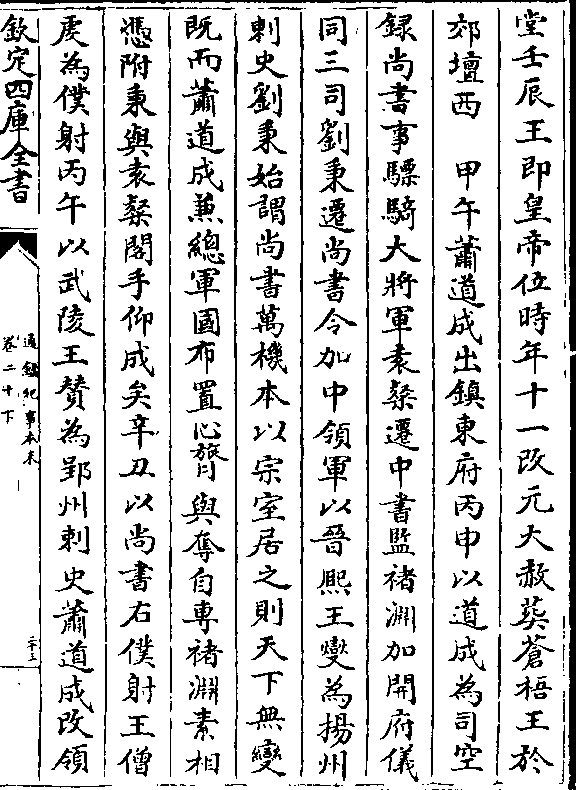 堂壬辰王即皇帝位時年十一改元大赦葬蒼梧王於
郊壇西　甲午蕭道成出鎮東府丙申以道成為司空
録尚書事驃騎大將軍袁粲遷中書監褚淵加開府儀
同三司劉秉遷尚書令加中領軍以晉熙王燮為揚州
刺史劉秉始謂尚書萬機本以宗室居之則天下無變
既而蕭道成兼總軍國布置心膂與奪自專褚淵素相
憑附秉與袁粲閣手仰成矣辛丑以尚書右僕射王僧
虔為僕射丙午以武陵王贊為郢州刺史蕭道成改領
欽定四庫全書
通鑑紀事本末
卷二十下
二十三